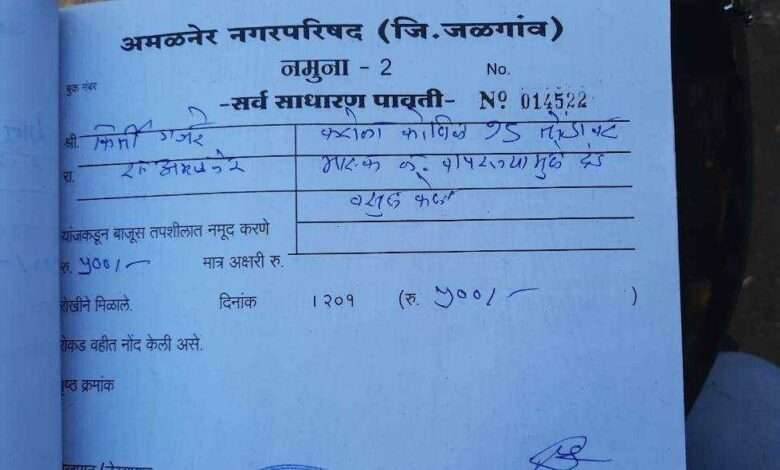 अमळनेर नगरपरिषद (जि.जळगांव)
नमुना - 2 No.
बुक नंबर
-सर्व साधारण पावती- Nº 014522
श्री. किर्ती गजरे करोना कोविड १९ तोंडावर
रा. रा अमळनेर मास्क न वापरल्यामुळे दंड
वसुल केला
यांजकडून बाजूस तपशीलात नमूद करणे
रु. ५००/- मात्र अक्षरी रु.
रोखीने मिळाले. दिनांक । २०१ (रु. ५००/- )
रोकड वहीत नोंद केली असे.
पृष्ठ क्रमांक